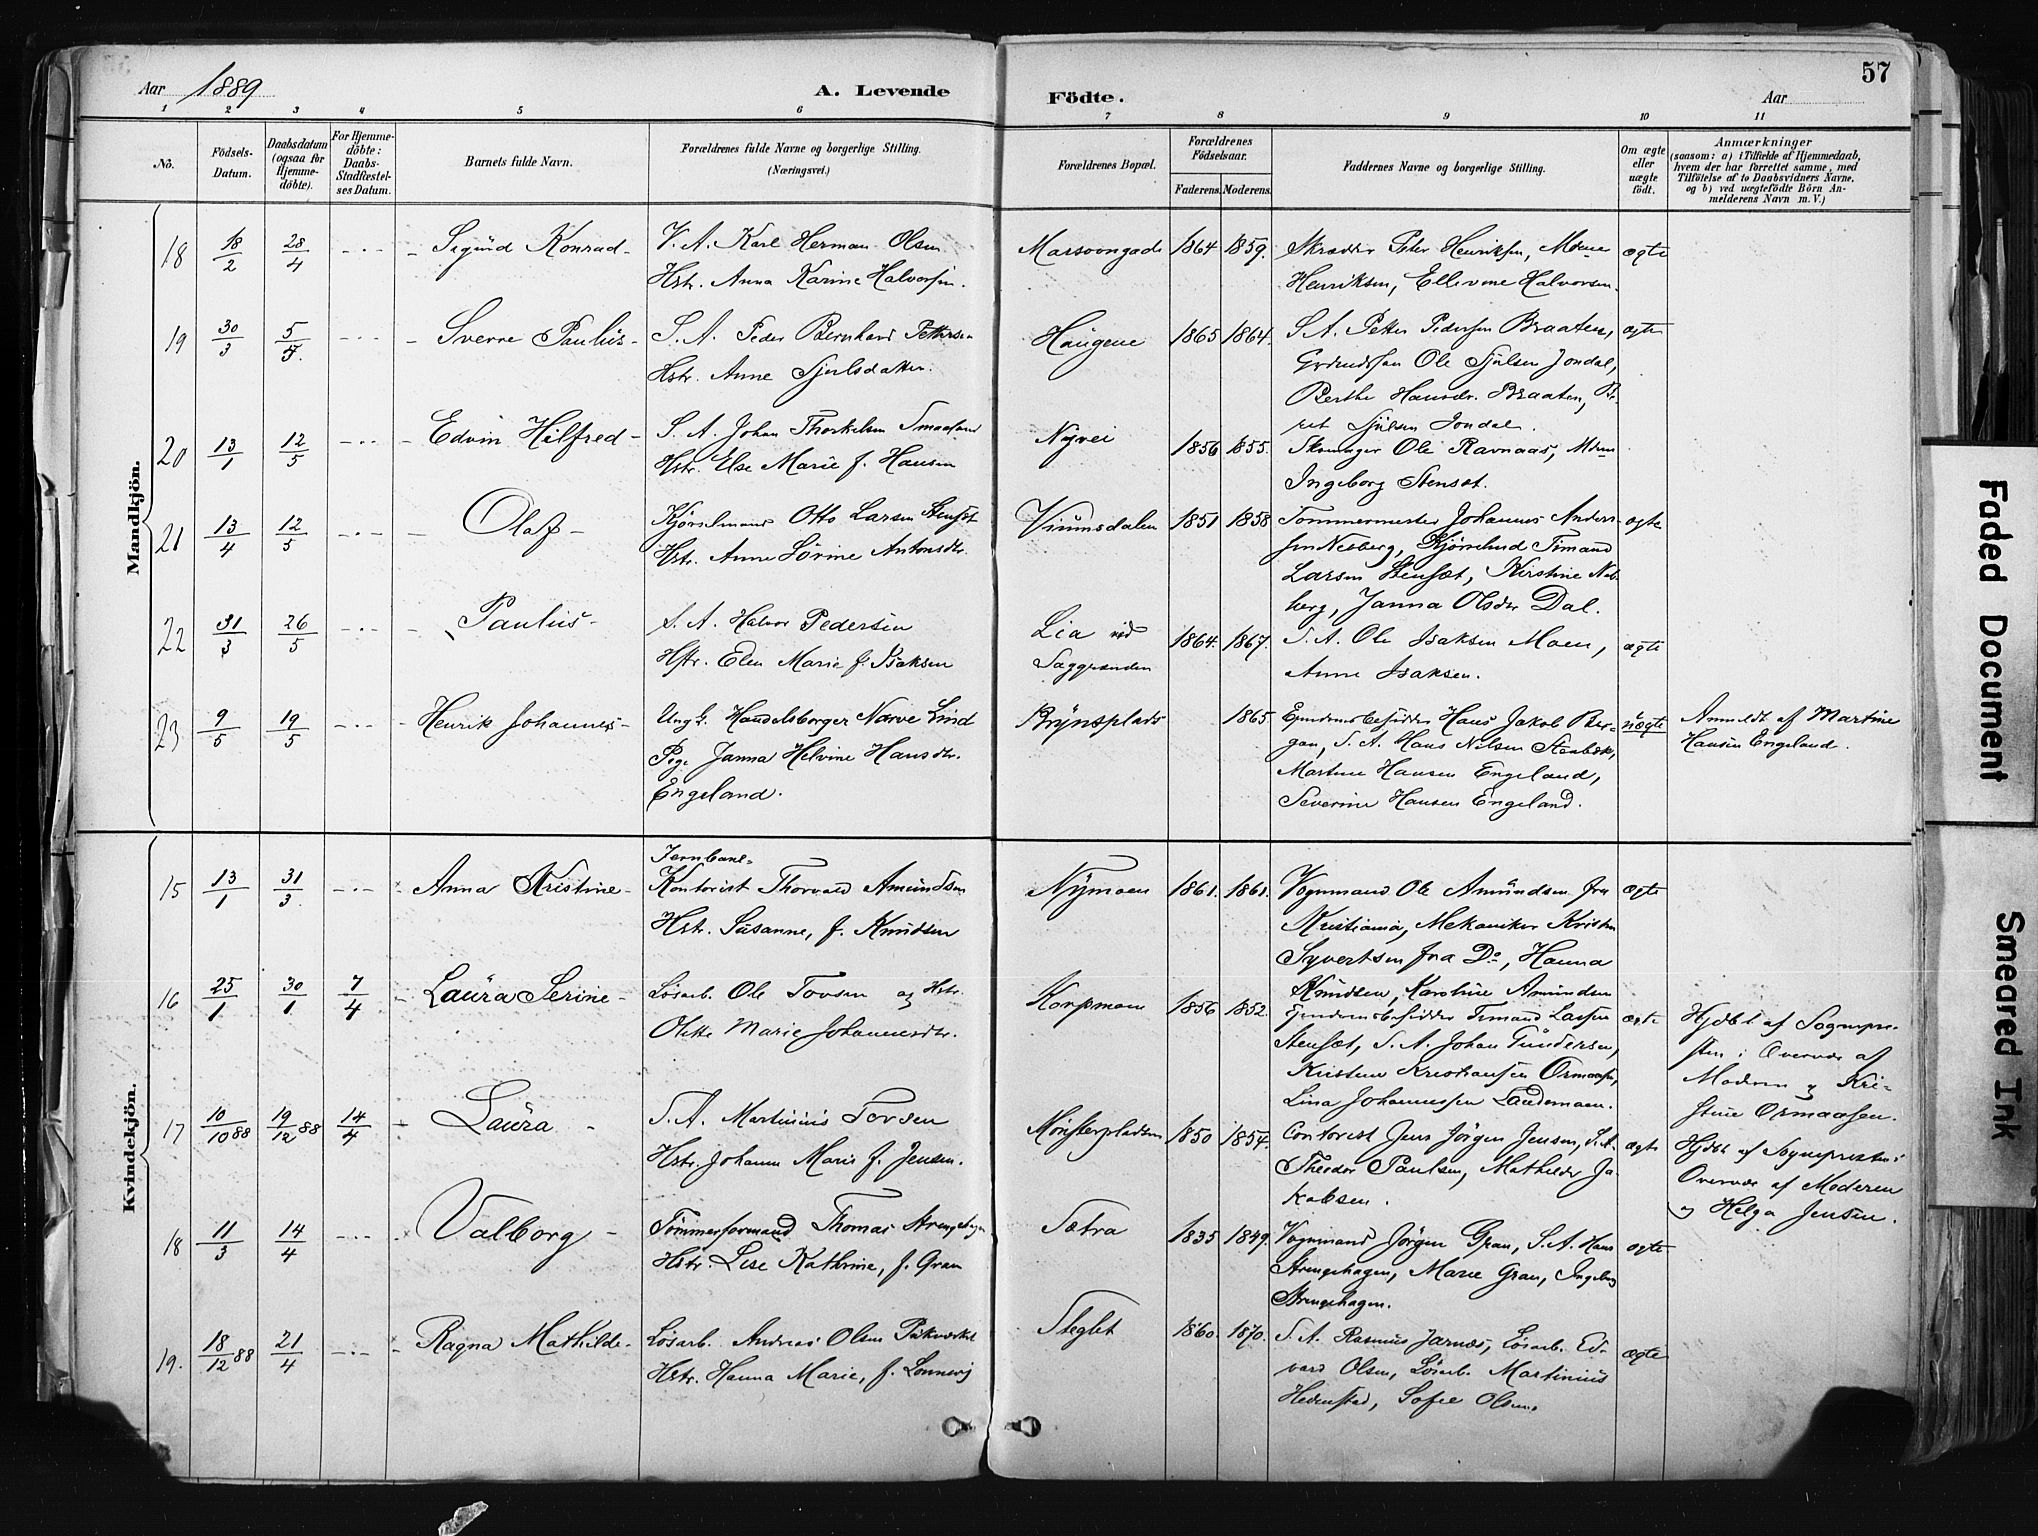 57
Aar 1889
A. Levende
Födte.
Aar
1 2 3 4 5 6 7 8 9 10 11
No.
Födsels-Datum.
Daabsdatum (ogsaa for Hjemmedöbte).
For Hjemmedöbte: Daabs-Stadfæstelses Datum.
Barnets fulde Navn.
Forældrenes fulde Navne og borgerlige Stilling.
(Næringsvei.)
Forældrenes Bopæl.
Forældrenes Födselsaar.
Faderens. Moderens.
Faddernes Navne og borgerlige Stilling.
Om ægte eller uægte födt.
Anmærkninger
(saasom: a) i Tilfælde af Hjemmedaab,
hvem der har forrettet samme, med
Tilföielse af to Daabsvidners Navne.
og b) ved uægtefödte Börn Anmelderens Navn m. V.)
Mandkjön.
18 18/2 28/4 Sigurd Konrad
F. A. Karl Herman Olsen
Hstr. Anna Karine Halvorsen.
1864 1859.
Skrædder Peter Henriksen,
Henriksen, Ellevine Halvorsen.
ægte
19 30/3 5/5 Sverre Paulus
S. A. Peder Bernhard Pettersen
Hstr. Anne Sjulsdatter.
Haugene 1865 1864.
S. A. Petter Pedersen Braaten,
Ole Sjulsen Jondal,
Berthe Hansdr. Braaten, Be-
ret Sjulsen Jondal.
ægte
20 13/1 12/5 Edvin Hilfred
S. A. Johan Thorkelsen Smaasund
Hstr. Else Marie f. Hansen
Nyvei 1856 1855.
Ole Ravnaas,
Ingeborg Stensæt.
21 13/4 12/5 Olaf
Kjørselmand Otto Larsen Stensæt
Hstr. Anne Sørine Antonsdtr.
Vinmsdalen 1851 1858
Tømmermester Johannes Anders-
sen Nesberg, Timand
Larsen Stensæt, Kirstine Nes-
berg, Janna Olsdtr Dal.
ægte
22 31/3 26/5 Paulus
S. A. Halvor Pedersen
Hstr. Elen Marie f. Isaksen
Lia ved
Saggrenden
1864. 1867.
S. A. Ole Isaksen Moen,
Anne Isaksen.
ægte
23 9/5 19/5 Henrik Johannes
Ung k. Handelsborger Narve Lind
Pige Janna Helvine Hansdtr.
Engeland.
Brynsplads 1865.
Eiendomsbesidder Hans Jakob Ber-
gan, S. A. Hans Nilsen Stenbæk,
Martine Hansen Engeland,
Severine Hansen Engeland.
uægte
Anmeldt af Martine
Hansen Engeland.
Kvindekjön.
15 13/1 31/3 Anna Kristine
Jernbane-
Kontorist Thorvald Amundsen
Hstr. Susanne, f. Knudsen
Nymoen 1861. 1861.
Vognmand Ole Amundsen fra
Kristiania, Mekaniker Kristen
Syvertsen fra Do, Hanna
Knudsen, Karoline Amundsen
ægte
16 25/1 30/1 7/4 Laura Serine
Løsarb. Ole Tovsen og Hstr.
Olette Marie Johannesdtr.
Korpmoen 1856 1852.
Eiendomsbesidder Timand Larsen
Stensæt, S. A. Johan Gundersen,
Kristine Kristiansen Ormaasen,
Lina Johannessen Sandemoen.
ægte
Hjdbt. af Sognepre-
sten i Overvær af
Modren og Kri-
stine Ormaasen.
17 10/10 88 19/12 88 14/4 Laura
S. A. Martinius Tovsen
Hstr. Johanne Marie f. Jensen.
Mønsterpladsen 1850 1854.
Contorist Jens Jörgen Jensen, S. A.
Theodor Paulsen, Mathilde Ja-
kobsen.
ægte
Hjdbt af Sognepresten i
Overvær af Moderen
og Helga Jensen.
18 11/3 14/4 Valborg
Tømmerformand Thomas Strengehagen
Hstr. Lise Kathrine, f. Gran
Sætra 1835 1849.
Vognmand Jörgen Gran, S. A. Hans
Strengehagen, Marie Gran, Ingeborg
Strengehagen.
ægte
19. 18/12 88 21/4 Ragna Mathilde
Løsarb. Andreas Olsen
Hstr. Hanna Marie, f. Lonnevij
Steglet 1860. 1870.
S. A. Rasmus Jarnæs, Løsarb. Ed-
vard Olsen, Løsarb. Martinius
Hedenstad, Sofie Olsen.
ægte
Faded Document
Smeared Ink